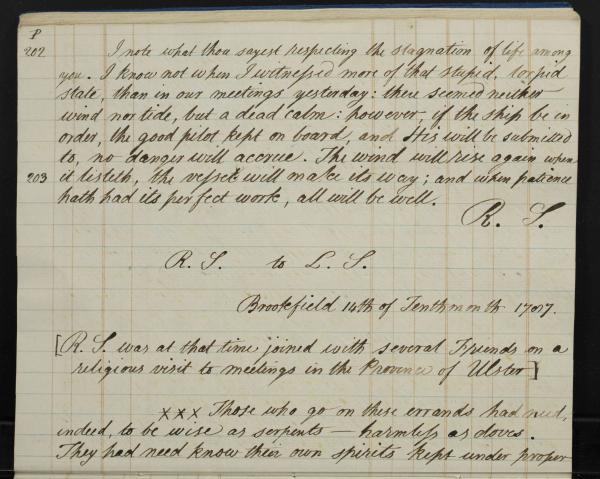 P
202 I note what thou sayest respecting the stagnation of life among
you. I know not when I witnessed more of that stupid, torpid
state, than in our meetings yesterday: there seemed neither
wind nor tide, but a dead calm: however, if the ship be in
order, the good pilot kept on board, and His will be submitted
to, no danger will accrue. The wind will rise again when
203 it listeth, the vessel will make its way; and when patience
hath had its perfect work, all will be well.
R. S.
R. S. to L. S.
Brookfield 14th of Tenth month
[R. S. was at that time joined with several Friends on a
religious visit to meetings in the Province of Ulster]
xxx Those who go on these errands had need,
indeed, to be wise as serpents — harmless as doves.
They had need know their own spirits kept under proper